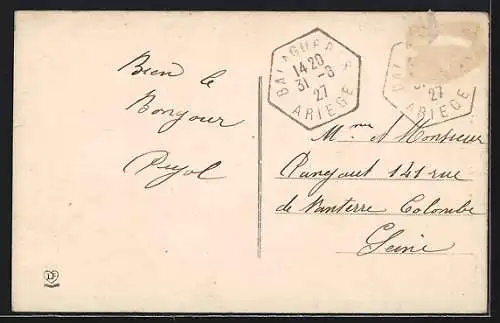 Bien le
Bonjour
Pujol
BALAGUER
14 20
31 - 8
27
ARIEGE
27
ARIEGE
Mme et Monsieur
141 rue
de Nanterre Colombe
Seine